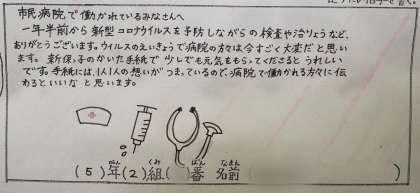 市民病院で働かれているみなさんへ
一年半前から新型コロナウイルスを予防しながらの検査や治りょうなど、
ありがとうございます。ウイルスのえいきょうで病院の方々は今すごく大変だと思い
ます。新保っ子のかいた手紙で少しでも元気をもらってくださるとうれしい
です。手紙には、1人1人の想いがつまっているので、病院で働かれる方々に伝
わるといいなと思います。
(5)年(2)組( )番 名前( )
ねん くみ ばん なまえ